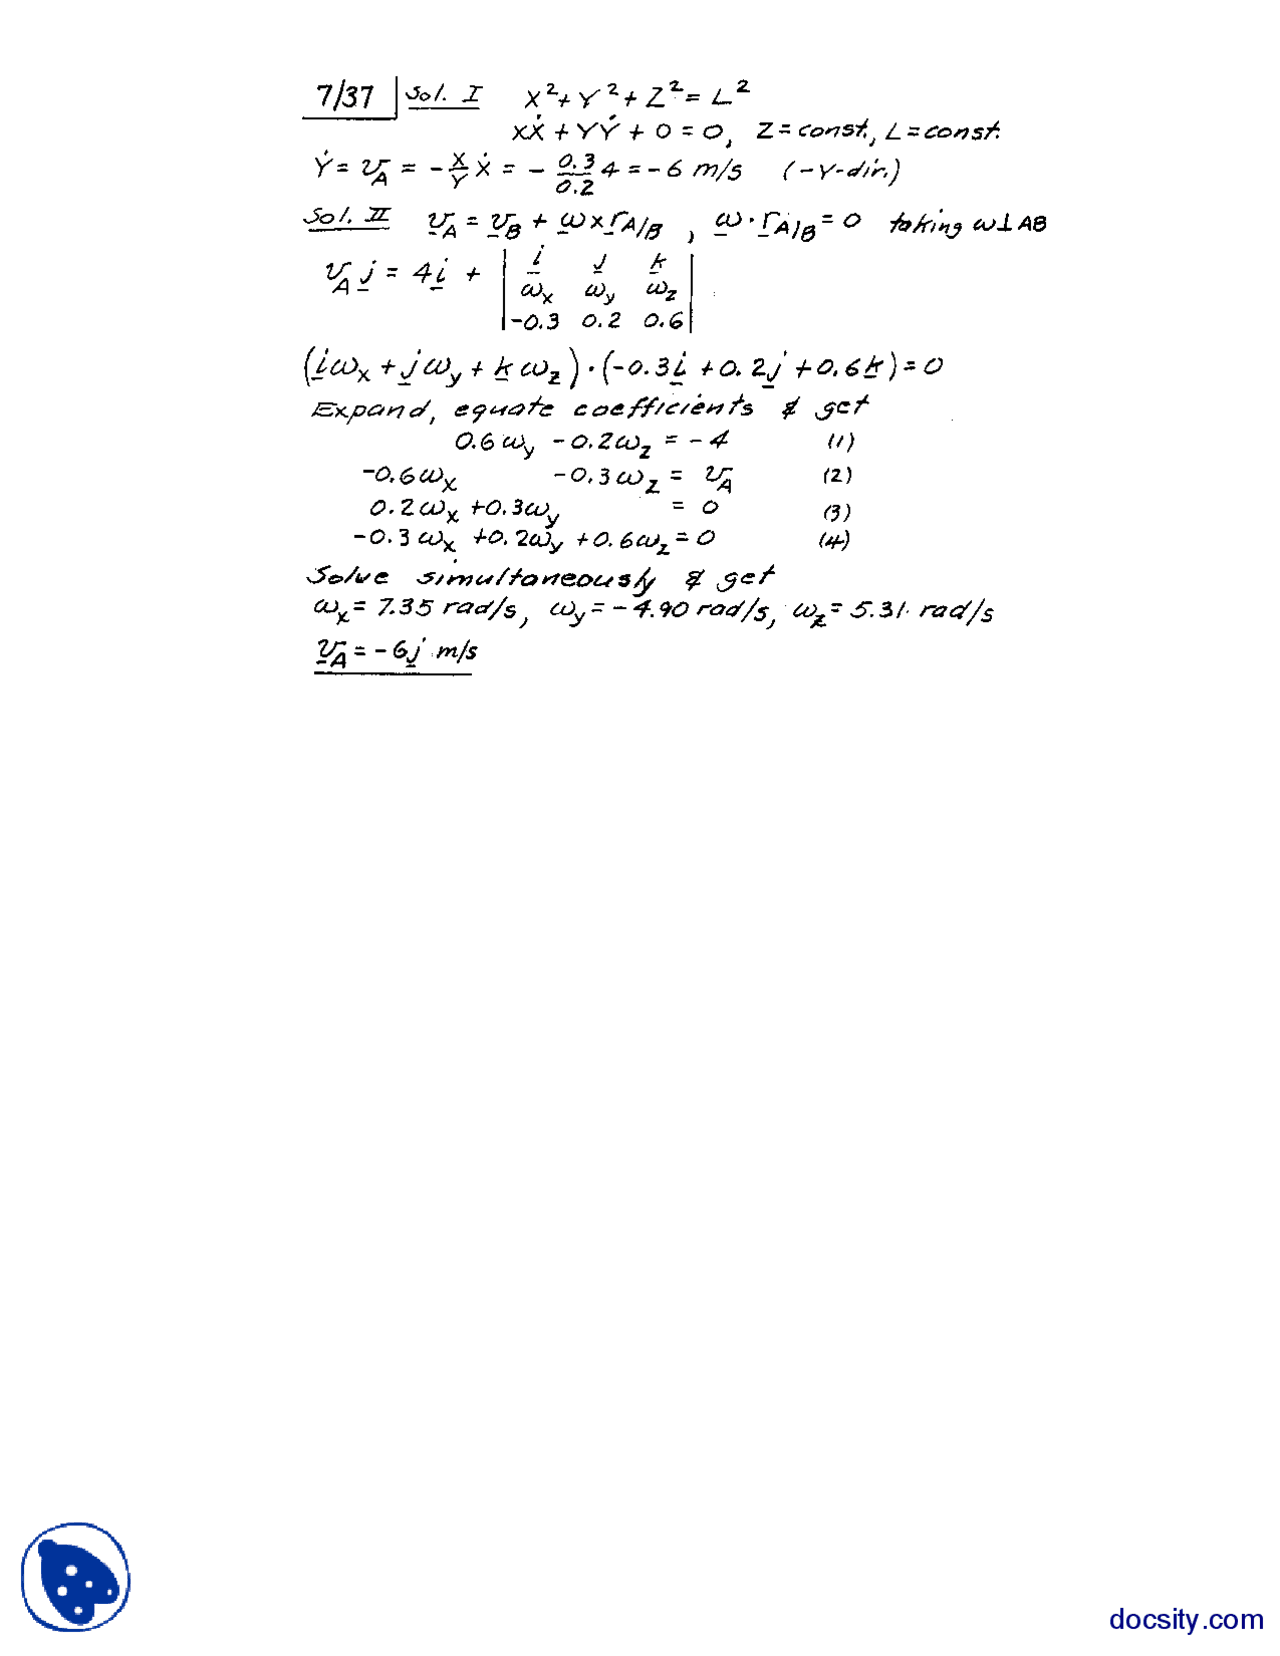 7/37 Sol. I X² + Y² + Z² = L²
XẊ + YẎ + 0 = 0, Z = const., L = const.
Ẏ = v_A = -X/Y Ẋ = - 0.3/0.2 4 = -6 m/s (-Y-dir.)
Sol. II v_A = v_B + ω × r_A/B , ω · r_A/B = 0 taking ω ⊥ AB
v_A j = 4i + | i j k |
| ω_x ω_y ω_z |
| -0.3 0.2 0.6 |
(iω_x + jω_y + kω_z) · (-0.3i + 0.2j + 0.6k) = 0
Expand, equate coefficients & get
0.6ω_y - 0.2ω_z = -4 (1)
-0.6ω_x - 0.3ω_z = v_A (2)
0.2ω_x + 0.3ω_y = 0 (3)
-0.3ω_x + 0.2ω_y + 0.6ω_z = 0 (4)
Solve simultaneously & get
ω_x = 7.35 rad/s, ω_y = -4.90 rad/s, ω_z = 5.31 rad/s
v_A = -6j m/s
docsity.com